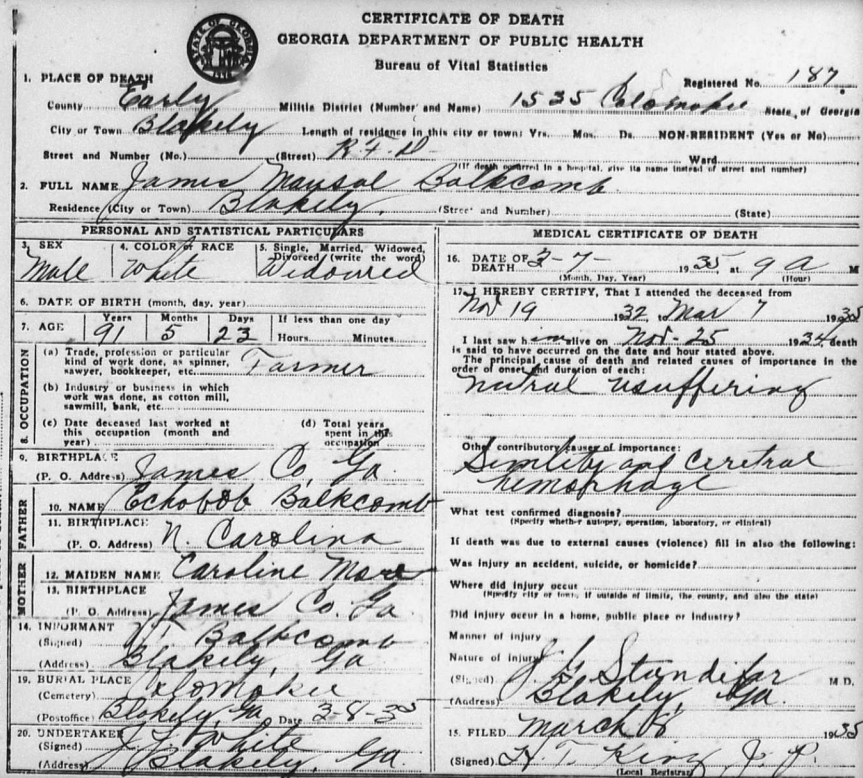 CERTIFICATE OF DEATH
GEORGIA DEPARTMENT OF PUBLIC HEALTH
Bureau of Vital Statistics
Registered No. 187
1. PLACE OF DEATH
County Early Militia District (Number and Name) 1535 Colomokee State of Georgia
City or Town Blakely Length of residence in this city or town: Yrs. Mos. Ds. NON-RESIDENT (Yes or No)
Street and Number (No.) (Street) R.F.D. Ward
(If death occurred in a hospital, give its name instead of street and number)
2. FULL NAME James Balkcomb
Residence (City or Town) Blakely (Street and Number) (State)
PERSONAL AND STATISTICAL PARTICULARS
3. SEX 4. COLOR or RACE 5. Single, Married, Widowed, Divorced (write the word)
Male White Widowred
6. DATE OF BIRTH (month, day, year)
7. AGE Years Months Days If less than one day
91 5 23 Hours Minutes
8. OCCUPATION
(a) Trade, profession or particular
kind of work done, as spinner,
sawyer, bookkeeper, etc. Farmer
(b) Industry or business in which
work was done, as cotton mill,
sawmill, bank, etc.
(c) Date deceased last worked at
this occupation (month and
year)
(d) Total years
spent in this
occupation
9. BIRTHPLACE
(P. O. Address) James Co, Ga.
FATHER
10. NAME Balkcomb
11. BIRTHPLACE
(P. O. Address) N. Carolina
MOTHER
12. MAIDEN NAME Caroline
13. BIRTHPLACE
(P. O. Address) James Co. Ga
14. INFORMANT
(Signed) Balkcomb
(Address) Blakely, Ga
19. BURIAL PLACE
(Cemetery) Colomokee
(Postoffice) Blakely, Ga Date 3-8-35
20. UNDERTAKER
(Signed) White
(Address) Blakely, Ga.
MEDICAL CERTIFICATE OF DEATH
16. DATE OF
DEATH 3-7- 1935 at 9 a M
(Month, Day, Year) (Hour)
17. I HEREBY CERTIFY, That I attended the deceased from
Nov 19 1932 Mar 7 1935
I last saw him alive on Nov-25 1934 death
is said to have occurred on the date and hour stated above.
The principal cause of death and related causes of importance in the
order of onset and duration of each:
Other contributory causes of importance:
and
hemorhage
What test confirmed diagnosis?
(Specify whether autopsy, operation, laboratory, or clinical)
If death was due to external causes (violence) fill in also the following:
Was injury an accident, suicide, or homicide?
Where did injury occur
(Specify city or town, if outside of limits, the county, and also the state)
Did injury occur in a home, public place or industry?
Manner of injury
Nature of injury
(Signed) Standifer M.D.
(Address) Blakely, Ga.
15. FILED March 8 1935
(Signed) H. T. King J. P.
(Local Registrar)